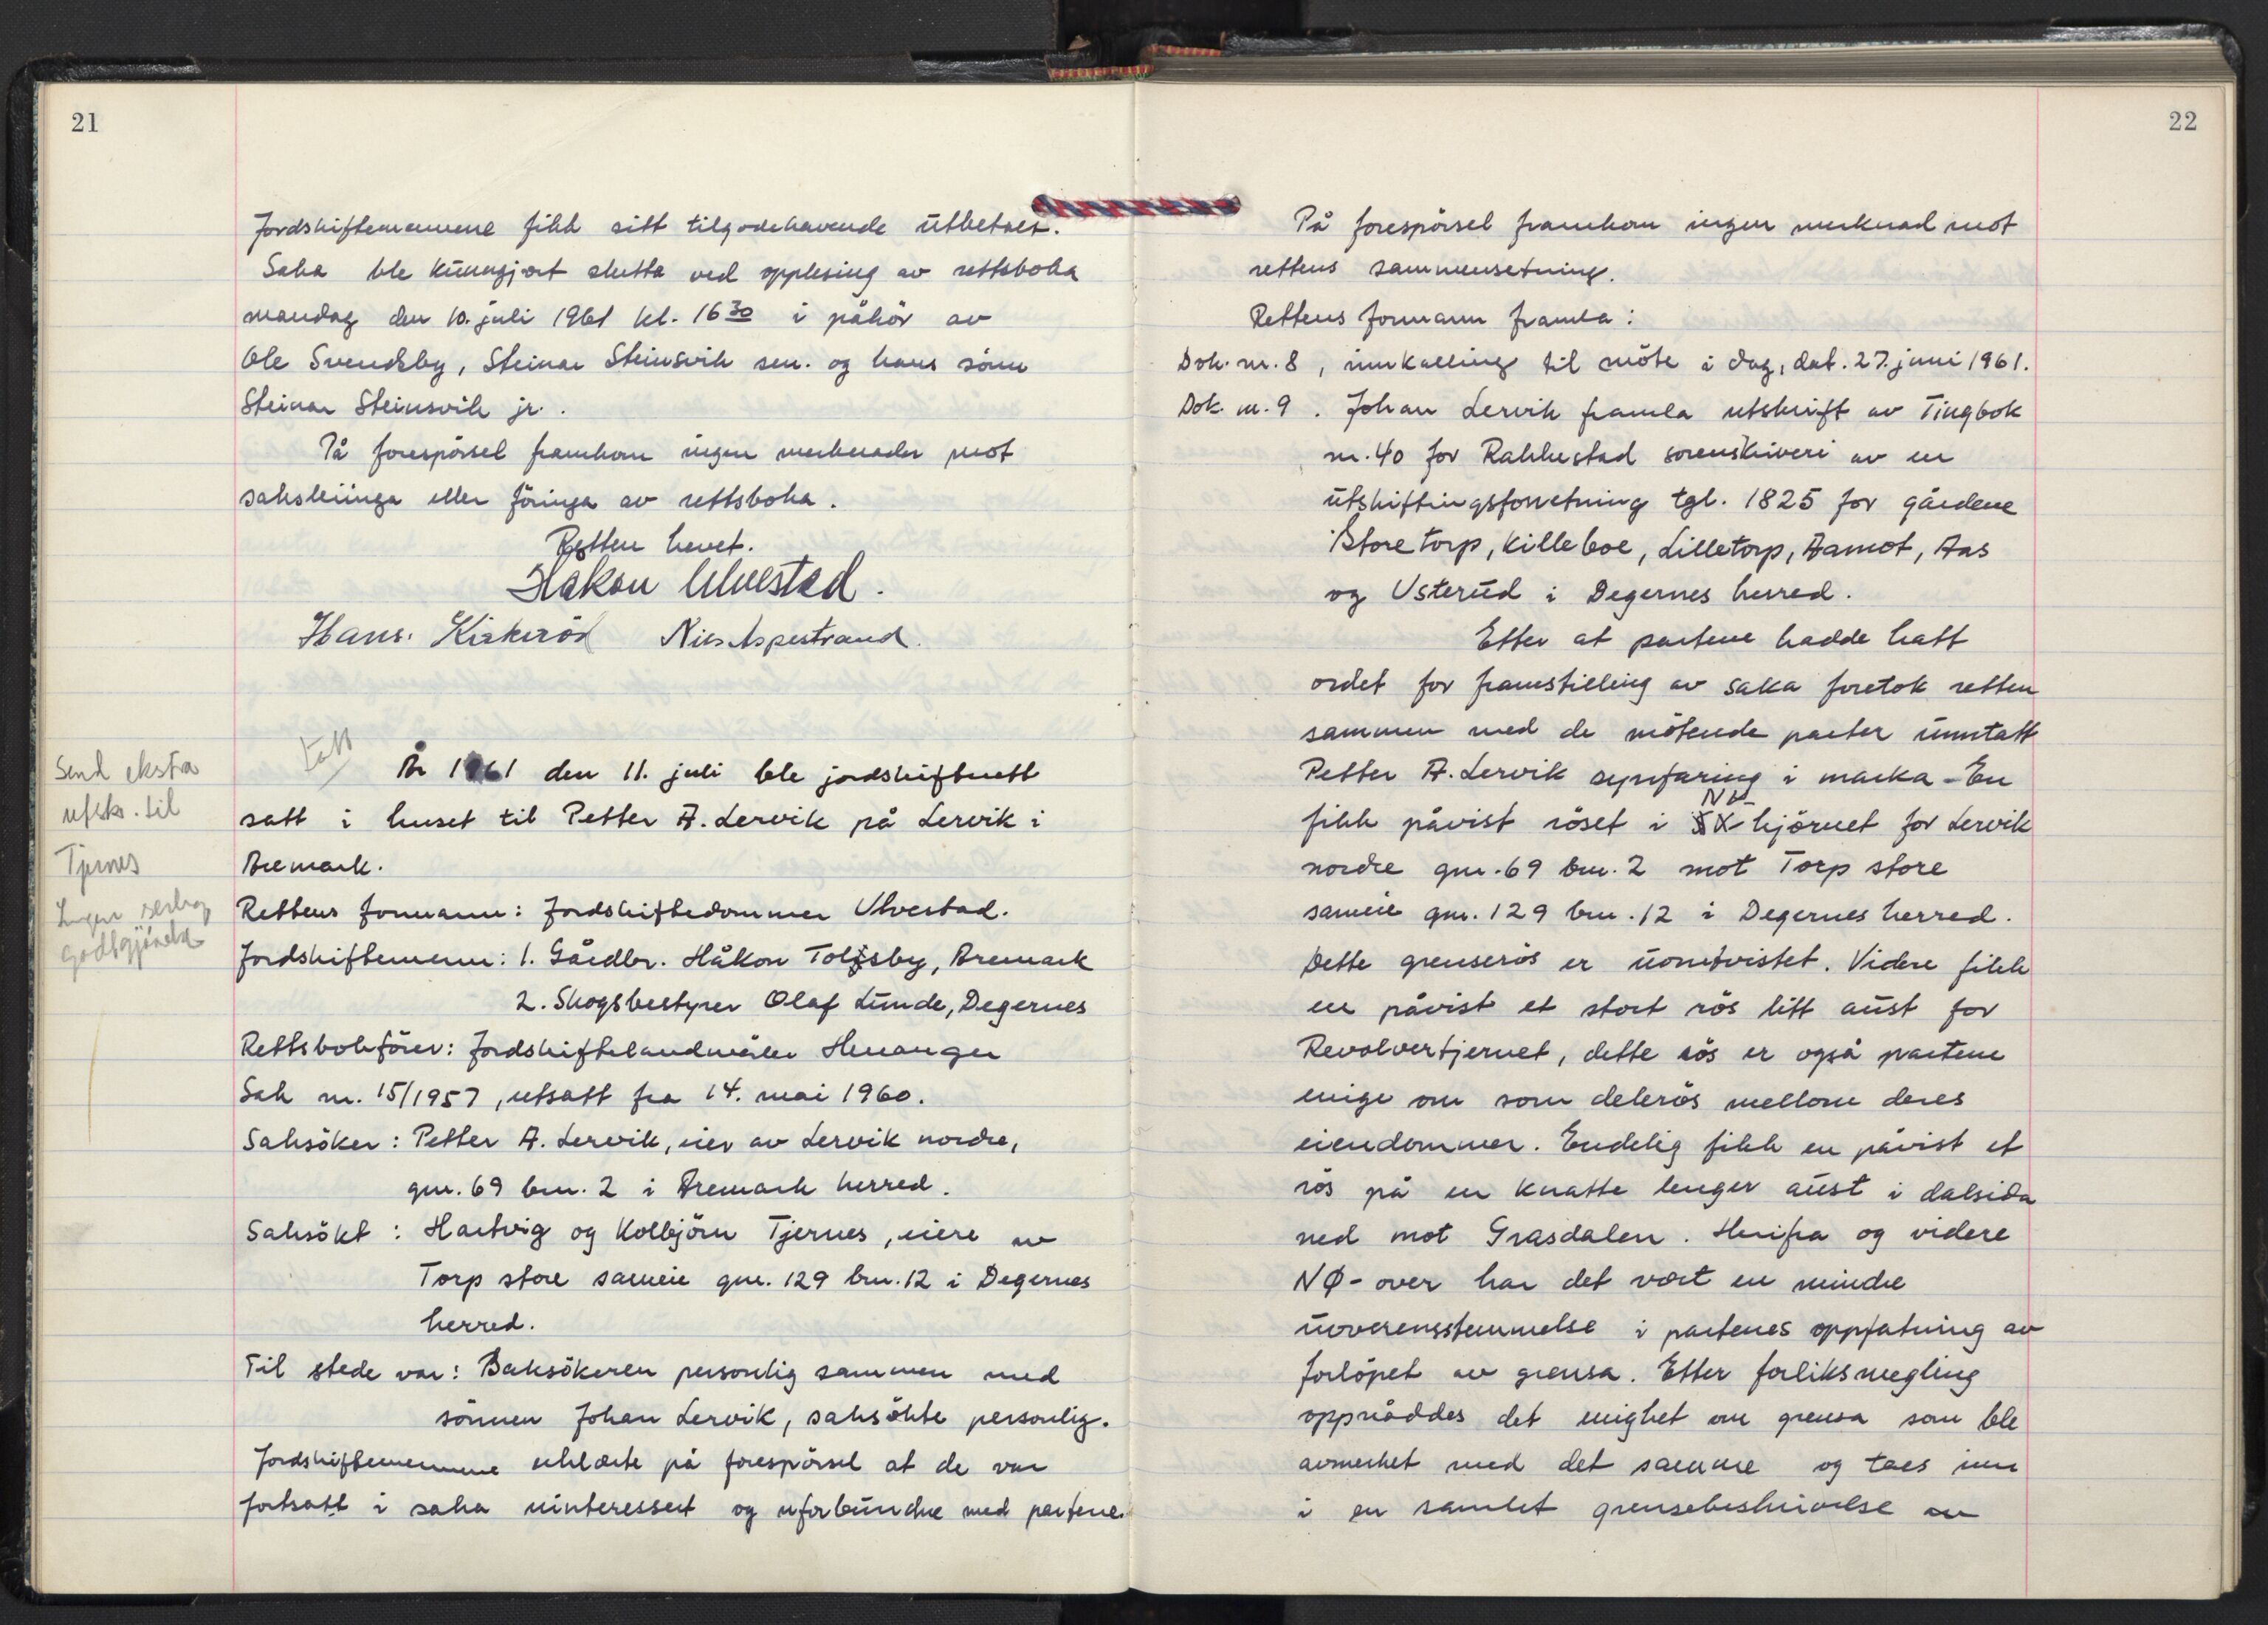 21
Jordskiftemennene fikk sitt tilgodehavende utbetalt.
Saka ble kunngjort slutta ved opplesing av rettsboka
mandag den 10. juli 1961 kl. 16 30 i påhör av
Ole Svendsby, Steinar Steinsvik sen. og hans sönn
Steinar Steinsvik jr..
På forespörsel framkom ingen merknader mot
saksleiinga eller föringa av rettsboka.
Retten hevet.
Håkon Ulvestad.
Hans. Kirkeröd Nils Aspestrand.
Send ekstra
utskr. til
Tjernes
Ingen
godtgjörelse
År 1961 den 11. juli ble jordskifterett
satt i huset til Petter A. Lervik på Lervik i
Aremark.
Rettens formann: Jordskiftedommer Ulvestad.
Jordskiftemenn: 1. Gårdbr. Håkon Tolfsby, Aremark
2. Skogsbestyrer Olaf Lunde, Degernes
Rettsbokförer: Jordskiftelandmåler Henanger
Sak nr. 15/1957, utsatt fra 14. mai 1960.
Saksöker: Petter A. Lervik, eier av Lervik nordre,
gnr. 69 bnr. 2 i Aremark herred.
Saksökt: Hartvig og Kolbjörn Tjernes, eiere av
Torp store sameie gnr. 129 bnr. 12 i Degernes
herred.
Til stede var: Saksökeren personlig sammen med
sönnen Johan Lervik, saksökte personlig.
Jordskiftemennene erklærte på forespörsel at de var
fortsatt i saka uinteressert og uforbundne med partene.
22
På forespörsel framkom ingen merknad mot
rettens sammensetning.
Rettens formann framla:
Dok. nr. 8, innkalling til möte i dag, dat. 27. juni 1961.
Dok. nr. 9. Johan Lervik framla utskrift av Tingbok
nr. 40 for Rakkestad sorenskriveri av en
utskiftingsforretning tgl. 1825 for gårdene
Store torp, Killeboe, Lilletorp, Aamot, Aas
og Usterud i Degernes herred.
Etter at partene hadde hatt
ordet for framstilling av saka foretok retten
sammen med de mötende parter unntatt
Petter A. Lervik synfaring i marka - En
fikk påvist röset i NV hjörnet for Lervik
nordre gnr. 69 bnr. 2 mot Torp store
sameie gnr. 129 bnr. 12 i Degernes herred.
Dette grenserös er uomtvistet. Videre fikk
en påvist et stort rös litt aust for
Revolvertjernet, dette rös er også partene
enige om som delerös mellom deres
eiendommer. Endelig fikk en påvist et
rös på en knatte lenger aust i dalsida
ned mot Grasdalen. Herifra og videre
NØ-over har det vært en mindre
uoverensstemmelse i partenes oppfatning av
forlöpet av grensa. Etter forliksmegling
oppnåddes det enighet om grensa som ble
avmerket med det samme og taes inn
i en samlet grensebeskrivelse av